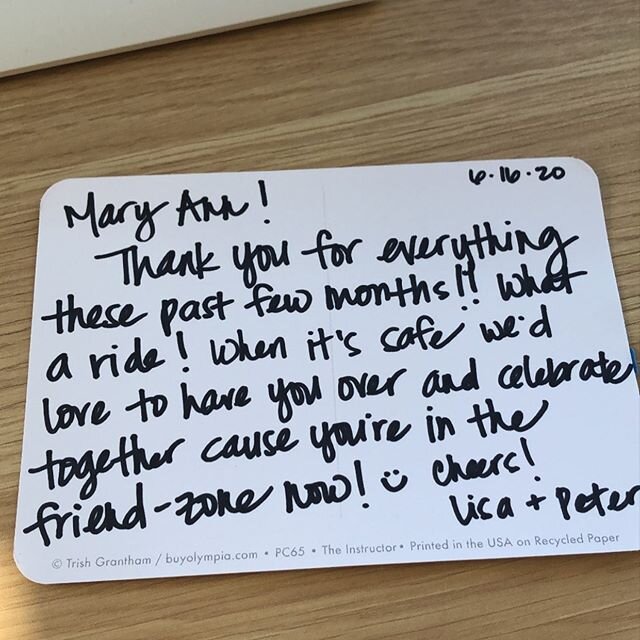 6.16.20
Mary Ann!
Thank you for everything
these past few months!! What
a ride! When it's safe we'd
love to have you over and celebrate
together cause you're in the
friend-zone now! Cheers!
Lisa + Peter
© Trish Grantham / buyolympia.com • PC65 • The Instructor • Printed in the USA on Recycled Paper